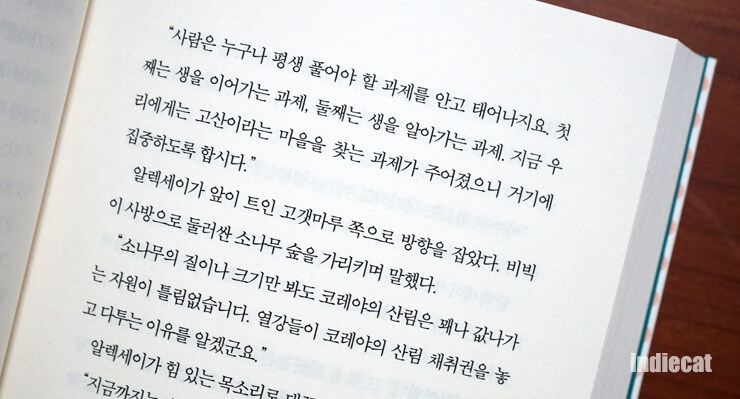 “사람은 누구나 평생 풀어야 할 과제를 안고 태어나지요. 첫
째는 생을 이어가는 과제, 둘째는 생을 알아가는 과제. 지금 우
리에게는 고산이라는 마을을 찾는 과제가 주어졌으니 거기에
집중하도록 합시다.”
알렉세이가 앞이 트인 고갯마루 쪽으로 방향을 잡았다. 비빅
이 사방으로 둘러싼 소나무 숲을 가리키며 말했다.
“소나무의 질이나 크기만 봐도 코레야의 산림은 꽤나 값나가
는 자원이 틀림없습니다. 열강들이 코레야의 산림 채취권을 놓
고 다투는 이유를 알겠군요.”
알렉세이가 힘 있는 목소리로
“지금까지는
indiecat